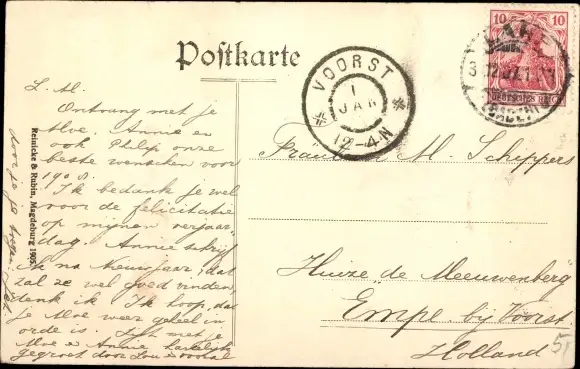 Postkarte
L. M.
Ontvang met je
Moe, Annie en
ook Philip onze
beste wenschen voor
1908.
Ik bedank je wel
voor de felicitatie
op mijnen verjaar-
dag. Annie schrijf
ik na Nieuwjaar, dat
zal ze wel goed vinden
denk ik. Ik hoop, dat
je Moe weer geheel in
orde is. Zijt met je
Moe en Annie hartelijk
gegroet door Lou en vooral
door je
Reinicke & Rubin, Magdeburg 1905
VOORST
1
JAN
12-4N
10 10
DEUTSCHES REICH
Fräulein M. Scheppers
Huize „de Meeuwenberg"
Empe bij Voorst
Holland
5,